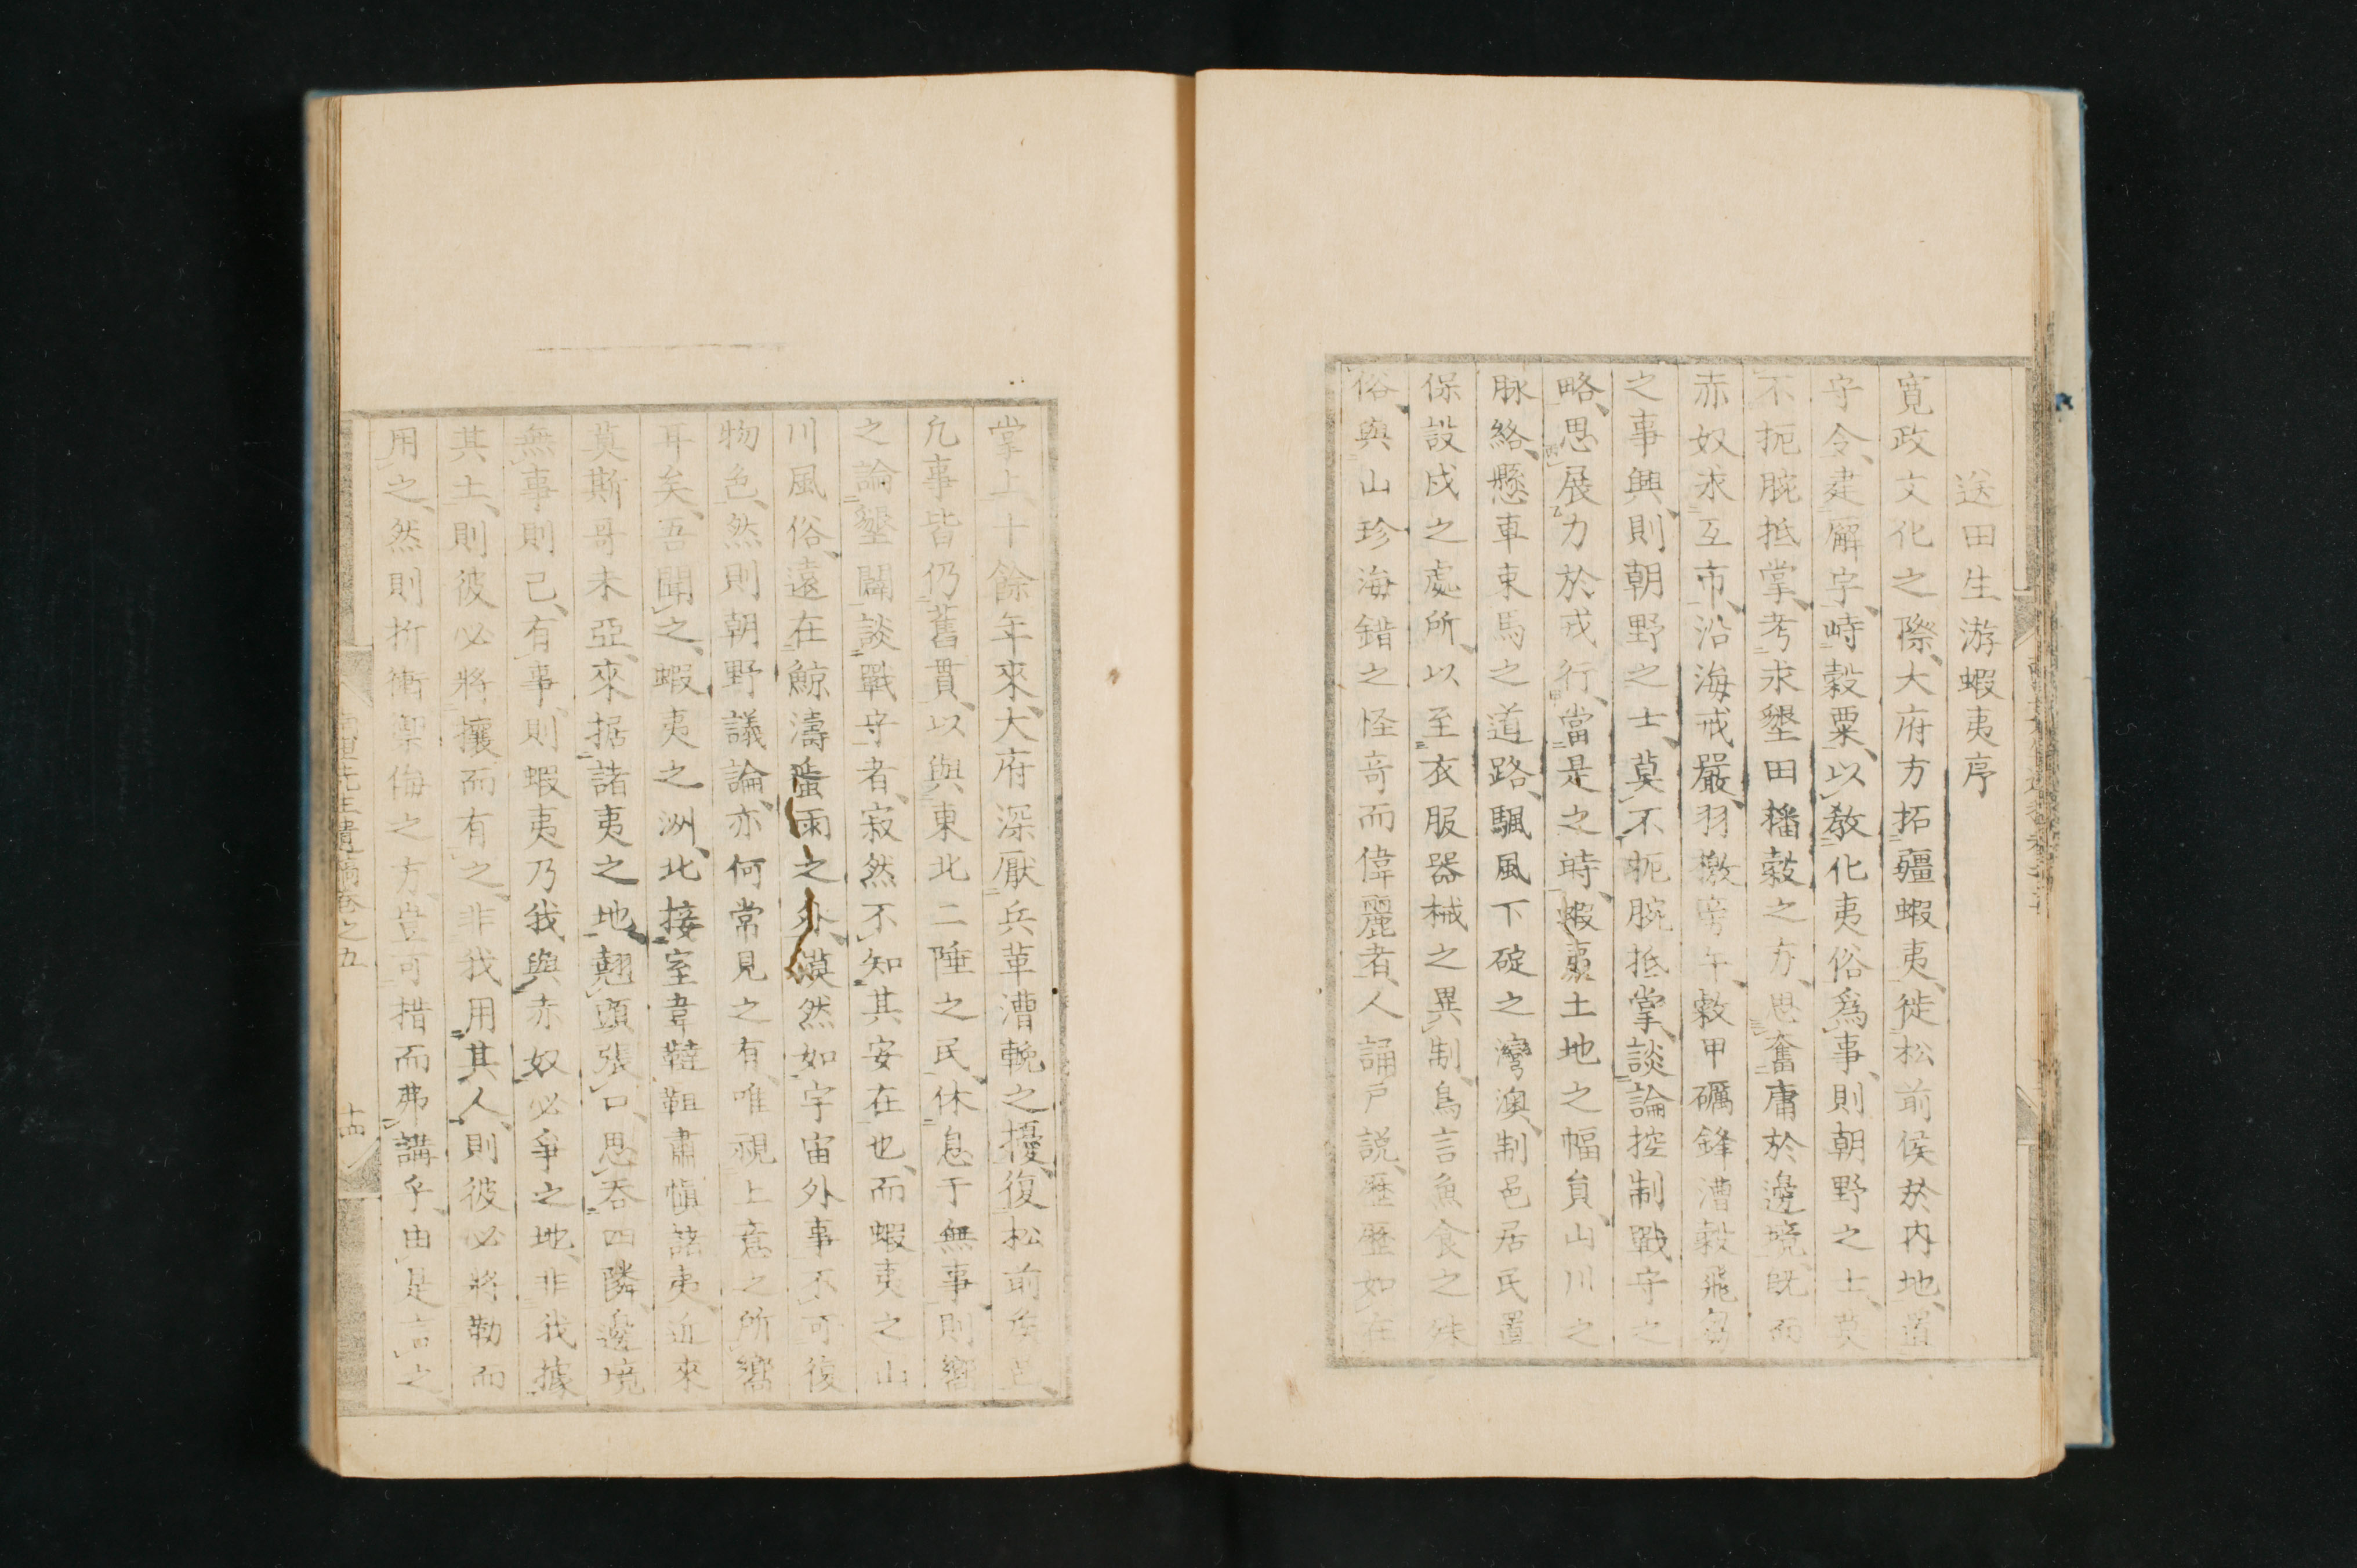 送田生游蝦夷序
寛政文化之際、大府方拓疆蝦夷、徙松前侯於内地、置
守令、建廨宇、峙穀粟、以教化夷俗爲事、則朝野之士、莫
不扼腕抵掌、考求墾田播穀之方、思奮庸於邊境、既而
赤奴求互市、沿海戒嚴、羽檄旁午、敹甲礪鋒漕穀飛芻
之事興、則朝野之士、莫不扼腕抵掌、談論控制戰守之
略、思展力於戎行、當是之時、蝦夷土地之幅員、山川之
脉絡、懸車束馬之道路、颿風下碇之灣澳、制邑居民置
保設戍之處所、以至衣服器械之異制、鳥言魚食之殊
俗、與山珍海錯之怪奇而偉麗者、人誦戸説、歴歴如在
掌上、十餘年來、大府深厭兵革漕輓之擾、復松前矦邑、
凢事皆仍舊貫、以與東北二陲之民、休息于無事、則嚮
之論墾闢談戰守者、寂然不知其安在也、而蝦夷之山
川風俗、遠在鯨濤蜑雨之外、漠然如宇宙外事不可復
物色、然則朝野議論、亦何常見之有、唯視上意之所嚮
耳矣、吾聞之、蝦夷之洲、北接室韋韃靼肅愼諸夷、近來
莫斯哥未亞來据諸夷之地、翹頭張口、思呑四隣、邊境
無事則已、有事、則蝦夷乃我與赤奴必爭之地、非我據
其土、則彼必將攘而有之、非我用其人、則彼必將勒而
用之、然則折衝禦侮之方、豈可措而弗講乎、由是言之、
先生遺稿卷之五
十四